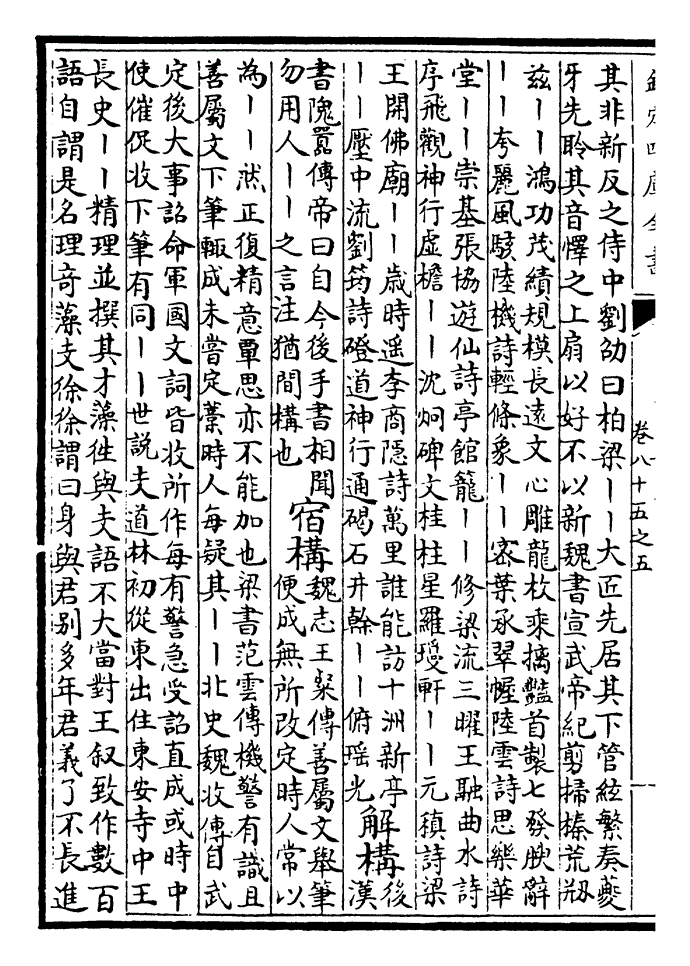 欽定四庫全書
卷八十五之五
其非新反之侍中劉劭曰柏梁丨丨大匠先居其下管絃繁奏夔
牙先聆其音懌之上扇以好不以新魏書宣武帝紀剪掃榛荒剏
兹丨丨鴻功茂績規模長遠文心雕龍枚乘摛豔首製七發腴辭
丨丨夸麗風駭陸機詩輕條象丨丨宻葉承翠幄陸雲詩思樂華
堂丨丨崇基張協遊仙詩亭館籠丨丨修梁流三曜王融曲水詩
序飛觀神行虚檐丨丨沈炯碑文桂柱星羅璦軒丨丨元稹詩梁
王開佛廟丨丨歲時遥李商隱詩萬里誰能訪十洲新亭
丨丨壓中流劉筠詩磴道神行通碣石井幹丨丨俯瑶光
解構
後漢
書隗囂傳帝曰自今後手書相聞
勿用人丨丨之言注猶間構也
宿構
魏志王粲傳善屬文舉筆
便成無所改定時人常以
為丨丨然正復精意覃思亦不能加也梁書范雲傳機警有識且
善屬文下筆輙成未嘗定藁時人每疑其丨丨北史魏收傳自武
定後大事詔命軍國文詞皆收所作每有警急受詔直成或時中
使催促收下筆有同丨丨世說支道林初從東出住東安寺中王
長史丨丨精理並撰其才藻徃與支語不大當對王叙致作數百
語自謂是名理奇藻支徐徐謂曰身與君别多年君義了不長進